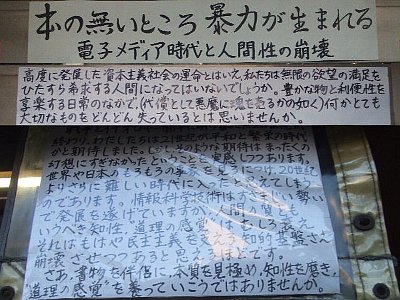 本の無いところ 暴力が生まれる
電子メディア時代と人間性の崩壊
高度に発展した資本主義社会の運命とはいえ、私たちは無限の欲望の満足を
ひたすら希求する人間になってはいないでしょうか。豊かな物と利便性を
享楽する日常のなかで、(代償として悪魔に魂を売るかの如く)何かとても
大切なものをどんどん失っているとは思いませんか。
終わり、わたしたちは21世紀が平和と繁栄の時代
かと期待しました。しかしそのような期待は まったくの
幻想にすぎなかったということを実感しつつあります。
世界や日本のもろもろの事象を見るにつけ、20世紀
よりさらに難しい時代に入ったと思えてしまう
のであります。情報科学技術はすさまじい勢い
で発展を遂げていますが、人間の人間とも
いうべき知性、道理の感覚はむしろ衰え、
それはもはや民主主義を支える知的基盤さえ
崩壊 させつつあると思えるほどです。
さあ、書物を伴侶に、本質を見極め、知性を磨き、
"道理の感覚"を養って いこうではありませんか。